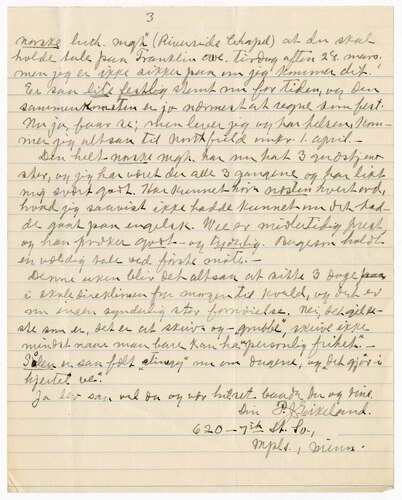 3
norske luth. mgh. (Riverside Chapel) at du skal
holde tale paa Franklin ave. tirsdag aften 28. mars,
men jeg er ikke sikker paa om jeg kommer dit.
Er saa lite festlig stemt nu for tiden, og den
sammenkomsten er jo nærmest at regne som fest.
Nu ja, faar se; men lever jeg og har helsen, kom-
mer jeg altsaa til Northfield omkr. 1. april. –
Den helt norske mgh. har nu hat 3 gudstjenes-
ter, og jeg har været der alle 3 gangene og har likt
mig svært godt. Har kunnet høre næsten hvert ord,
hvad jeg saavist ikke hadde kunnet om det had-
de gaat paa engelsk. Wee er midlertidig prest,
og han præker godt – og tydelig. Bergesen holdt
en vældig tale ved første møte. –
Denne uken blir det altsaa at sitte 3 dage paa
i skole fra morgen til kveld, og det er
nu ingen synderlig stor fornøielse. Nei, det gjæv-
ste som er, det er at skrive og "grubbe", skrive ikke
mindst naar man bare kan ha "personlig frihet". –
Solen er saa følt "stinn" nu om dagene, og "det gjør i
hjertet ve".
Ja lev saa vel da og vær hilset baade du og dine.
Din P. J. Eikeland.
620 – 7th St. So.,
Mpls., Minn.